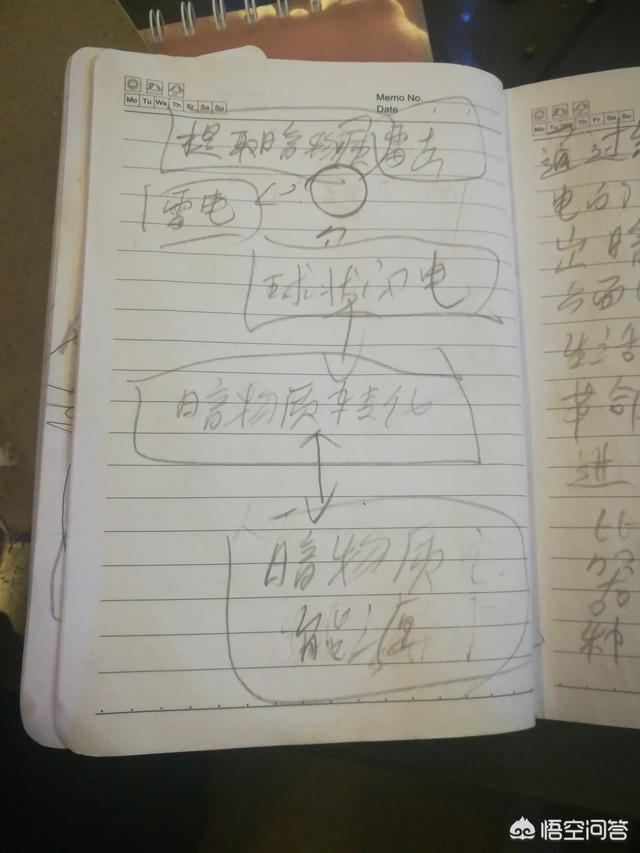 Memo No.
Date
Mo Tu We Th Fr Sa Su
提取暗物质
雷电
球状闪电
暗物质转化
暗物质
能源
Mo Tu We Th Fr Sa Su
通过
电的
出暗
方面
生活
革命
进
种
悟空问答